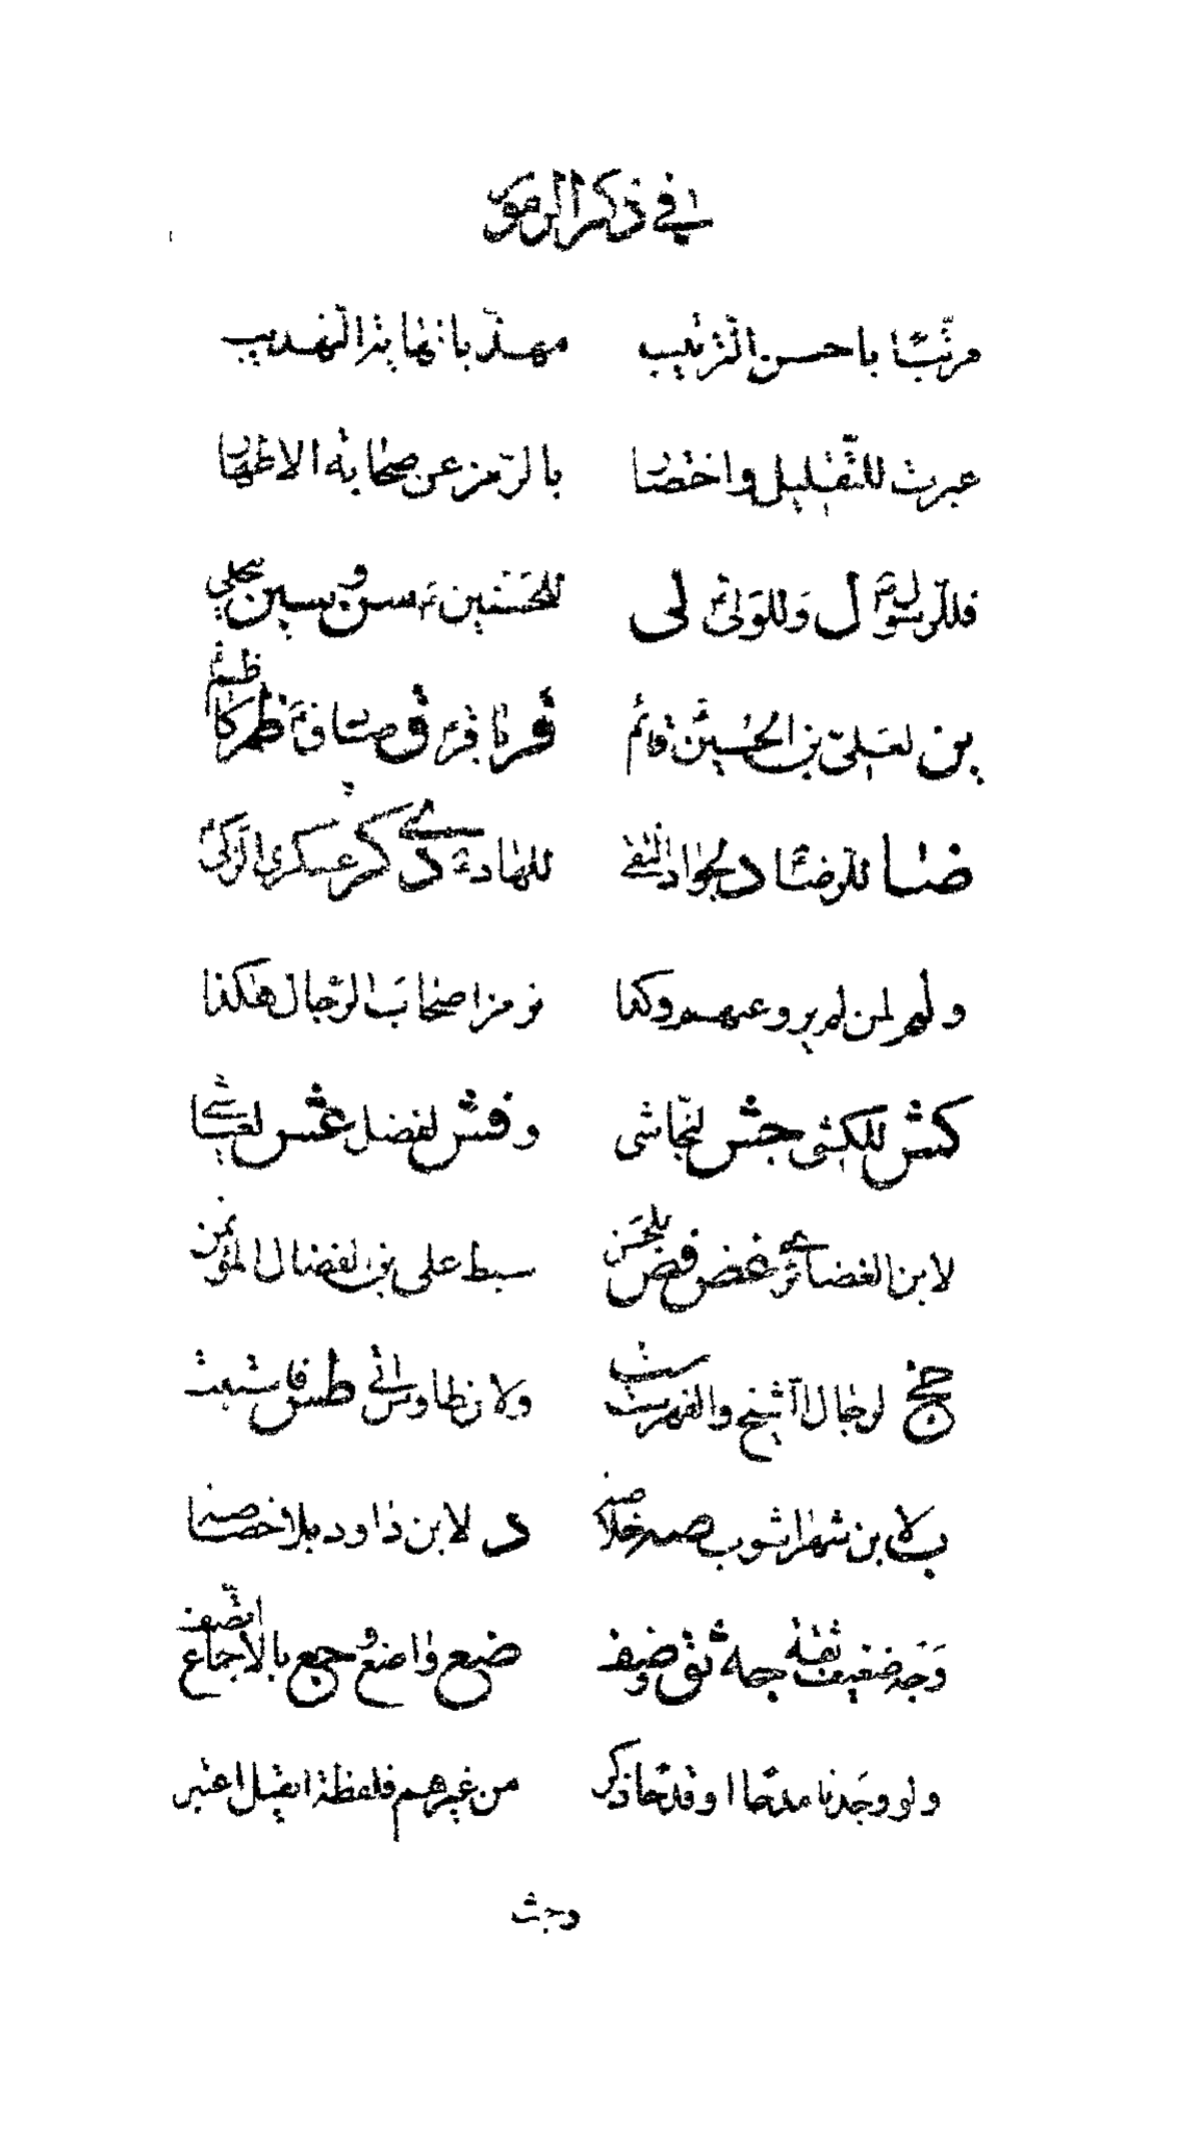 في ذكر الرموز
مرتّبا باحسن الترتيب مهذّبا بنهاية التهذيب
عبرت للتّقليل واختصار بالرّمز عن صحابة الاطهار
فللرّسول ل وللولىّ لى للحسنين سن و سين يجلي
ين لعليّ بن الحسين قائم قر باقر ق صادق ظم كاظم
ضا للرضا د لجواد التقي للهادي دي كر عسكري الزكي
ولم لمن لم يرو عنهم وكذا نرمز اصحاب الرّجال هكذا
كش للكشي جش لنجّاشي وفش لفضل عش لعياشي
لابن الغضائري غض فض للحسن سبط علي بن لفضال المؤتمن
جخ لرجال الشيخ والفهرست ست ولابن طاوس اتى طس فاستبنت
ب لابن شهراشوب صه خلاصة د لابن داود بلا خصاصة
وجه ضعيف ثقة جه ثق وضف ضع واضع و جع بالاجماع اتّصف
ولو وجدنا مدحا او قدحا ذكر من غيرهم فلفظة اقيل اعتبر
وجث